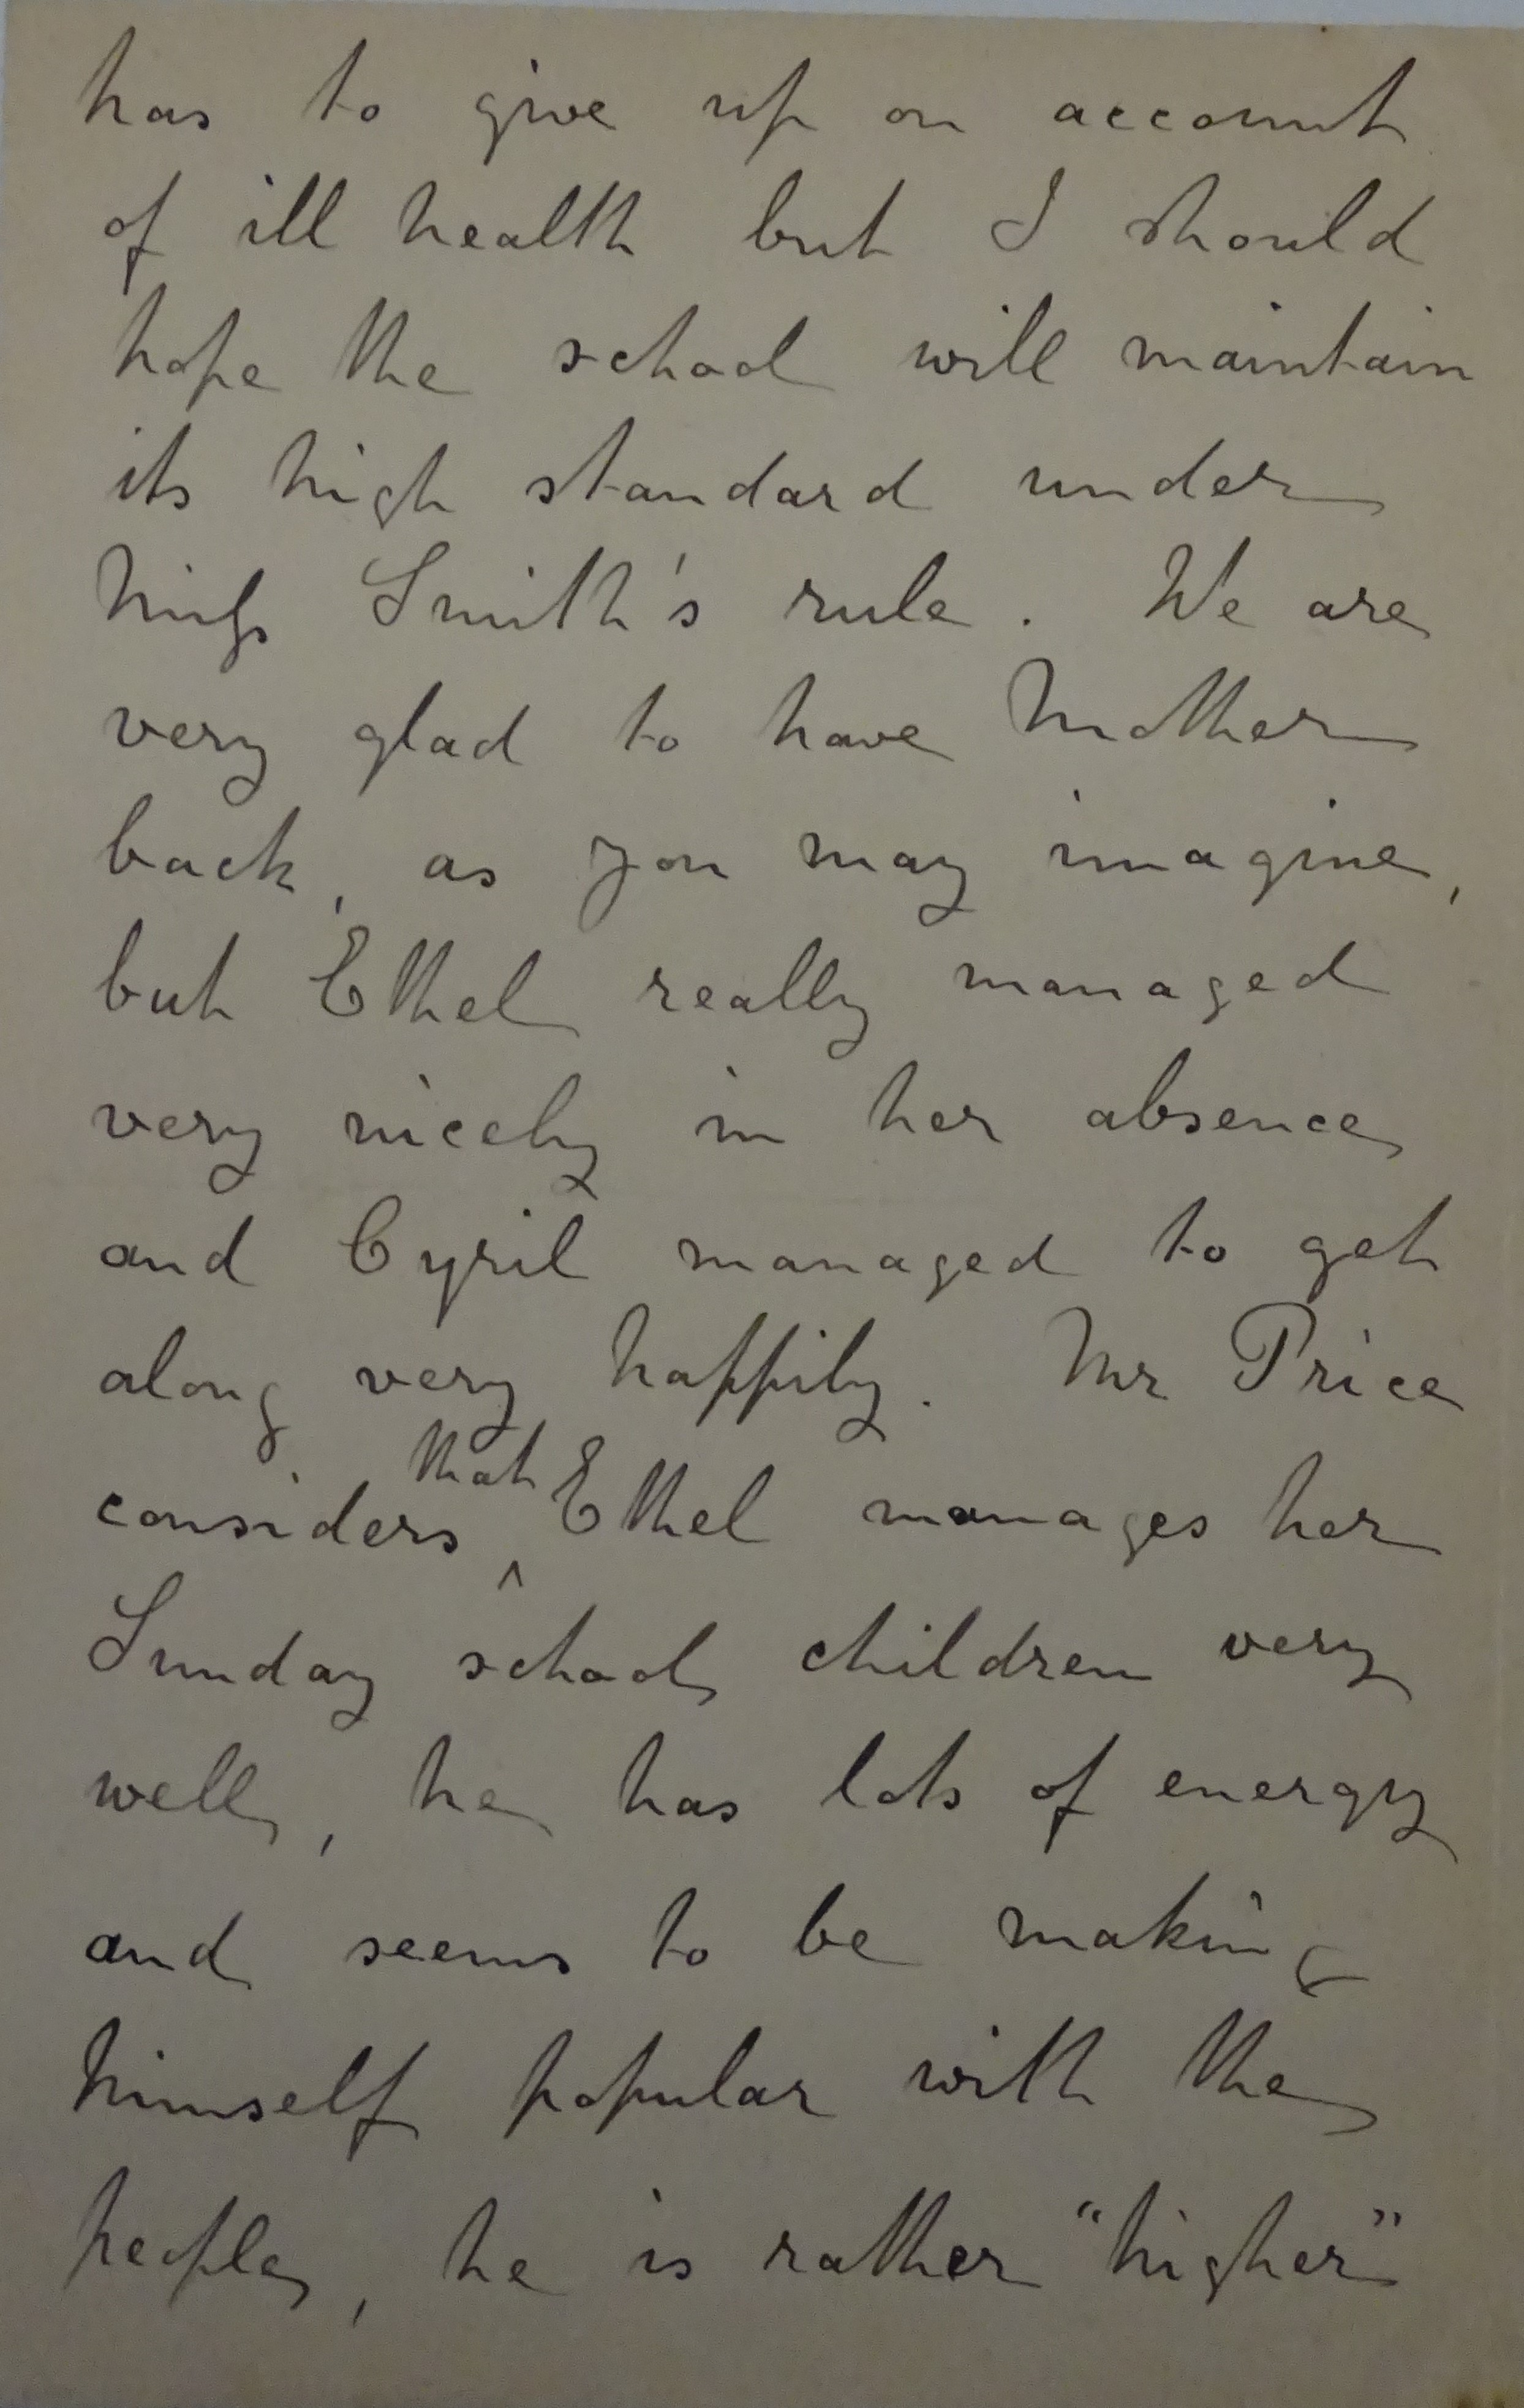 has to give up on account
of ill health but I should
hope the school will maintain
its high standard under
Miss Smith's rule. We are
very glad to have Mother
back, as you may imagine,
but Ethel really managed
very nicely in her absence
and Cyril managed to get
along very happily. Mr Price
that
considers ^ Ethel manages her
Sunday school children very
well, he has lots of energy
and seems to be making
himself popular with the
people, he is rather "higher"